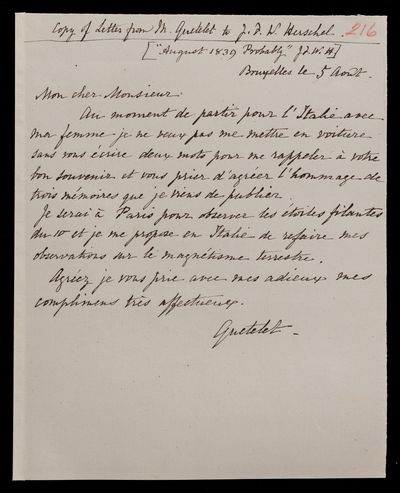 Copy of Letter from M. Quetelet to J. F. W. Herschel. 216
["August 1839 Probably" J.F.W.H.]
Bruxelles le 5 Août.
Mon cher Monsieur
Au moment de partir pour l'Italie avec
ma femme je ne veux pas me mettre en voiture
sans vous écrire deux mots pour me rappeler à votre
bon souvenir et vous prier d'agréer l'hommage de
trois mémoires que je viens de publier.
Je serai à Paris pour observer les étoiles filantes
du 10 et je me propose en Italie de refaire mes
observations sur le magnétisme terrestre.
Agréez je vous prie avec mes adieux mes
complimens très affectueux.
Quetelet